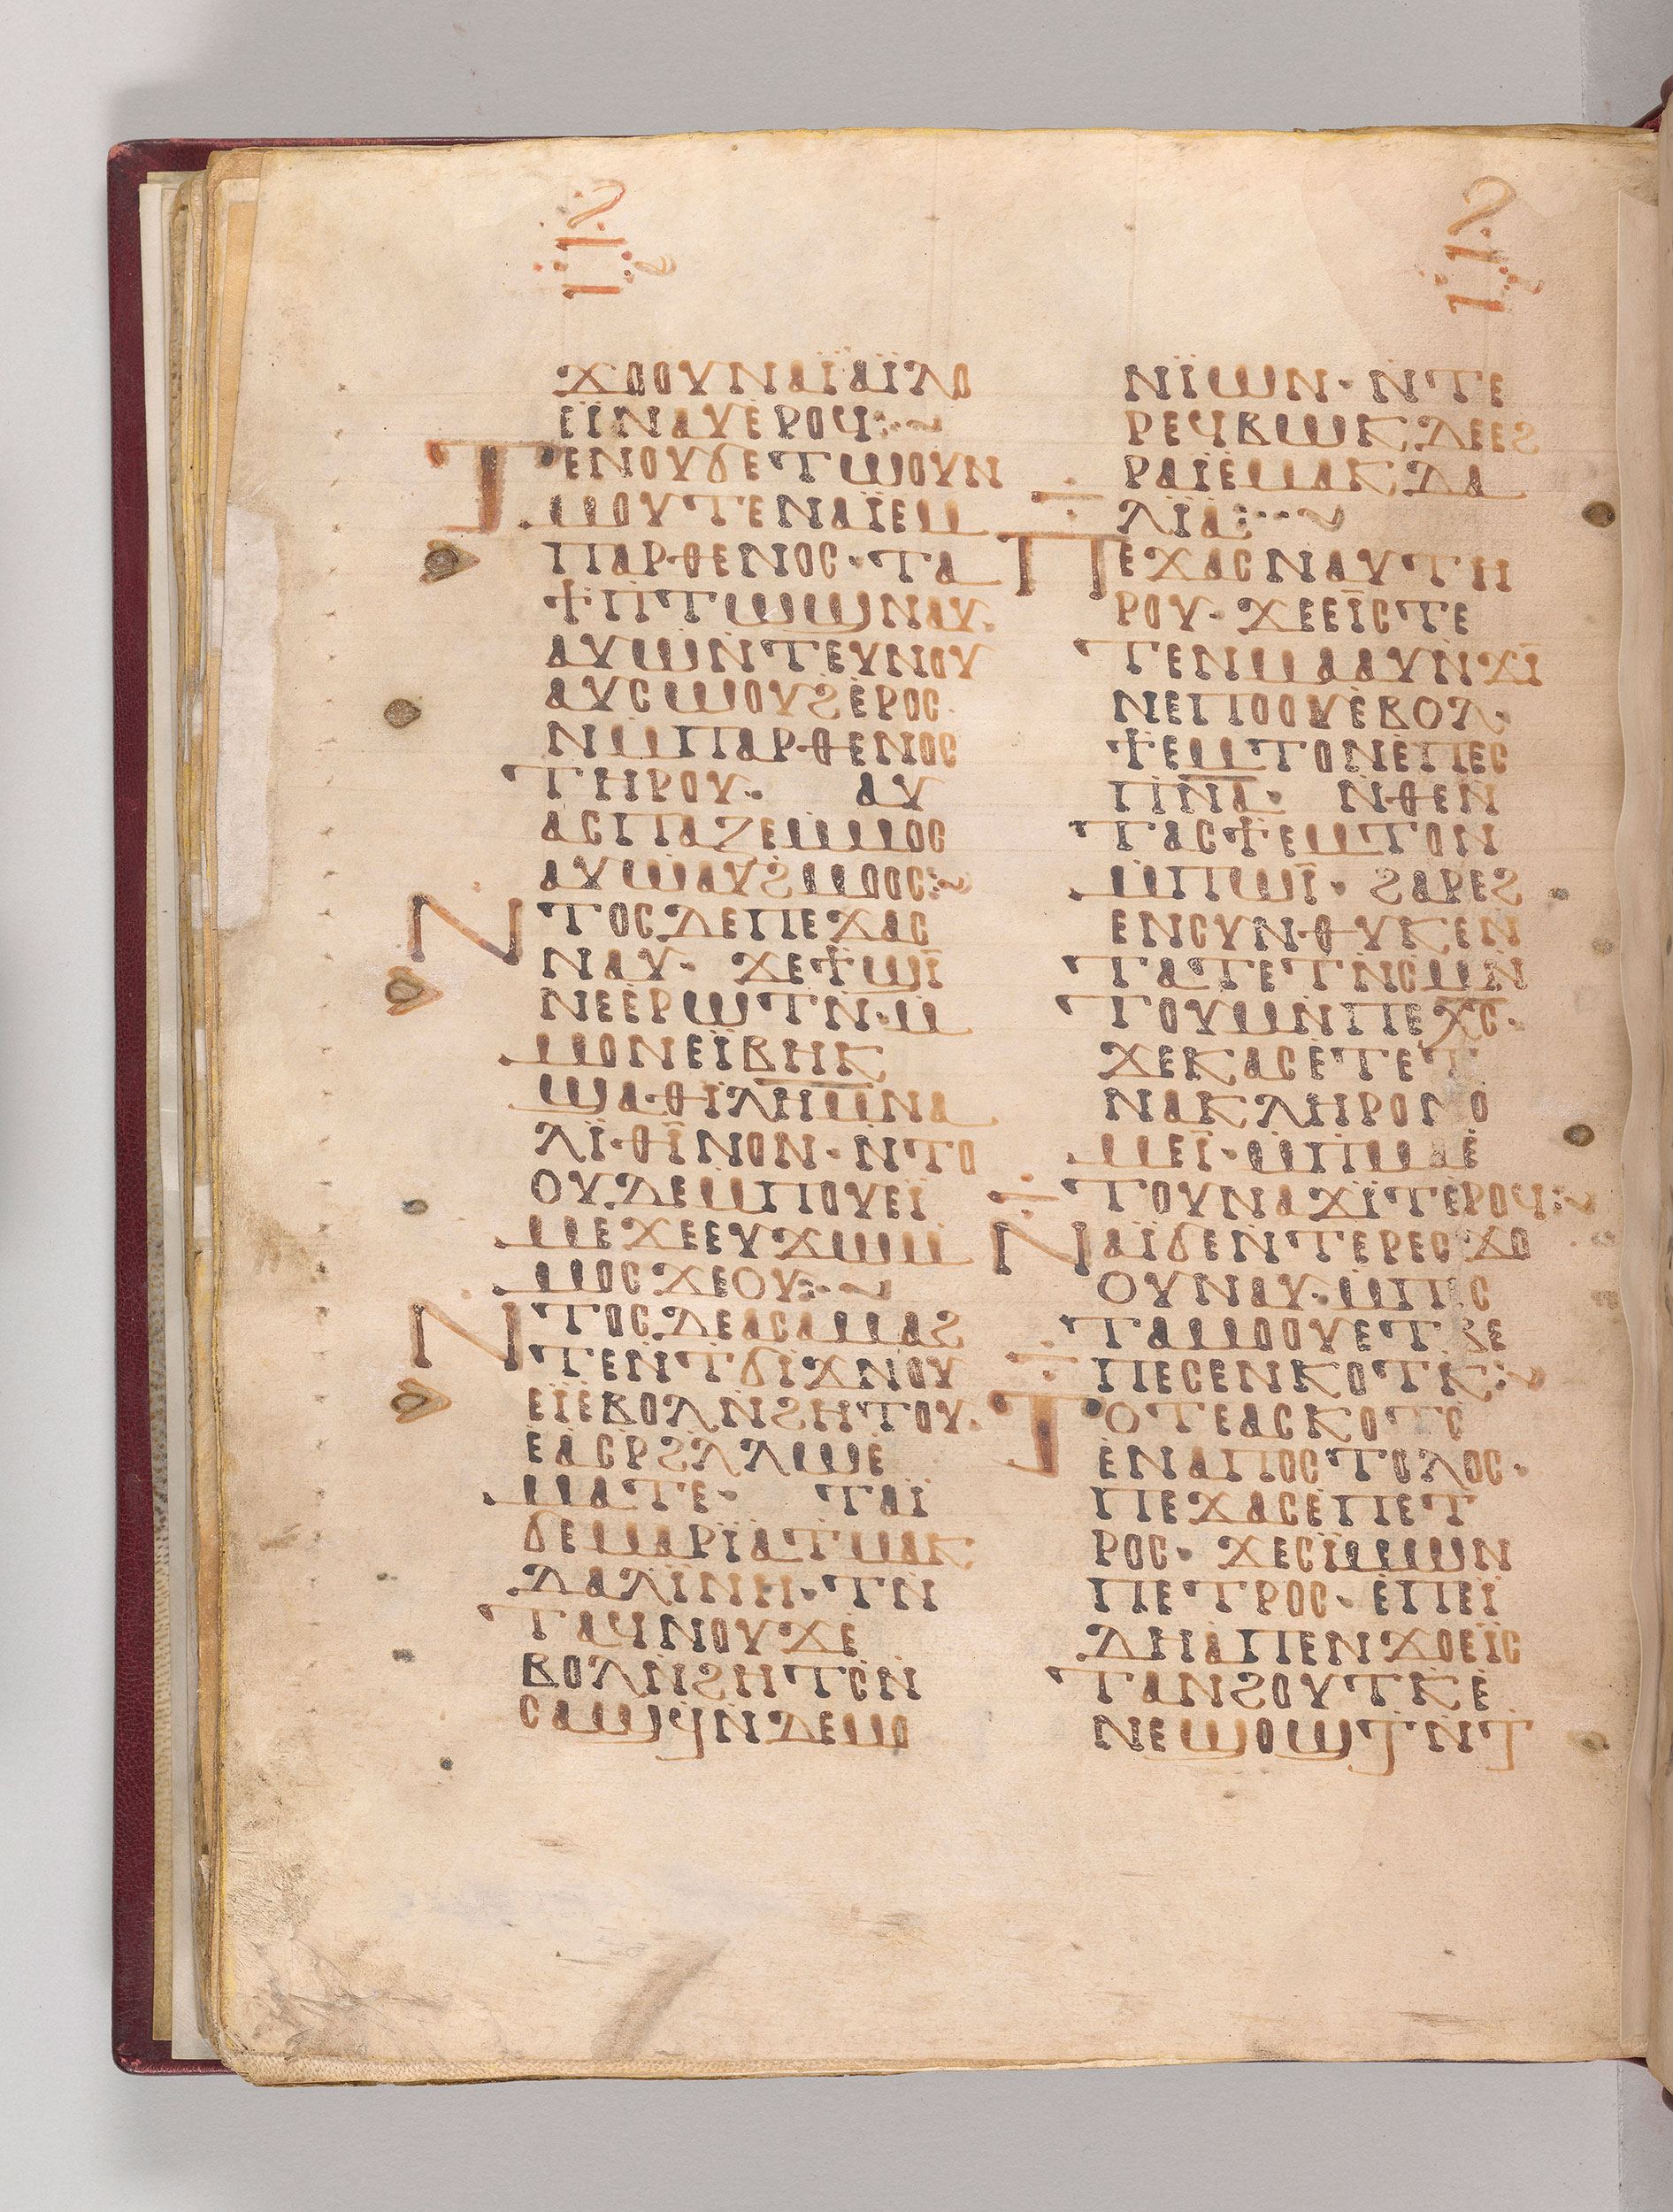 ϪⲞⲞⲨⲚⲀⲒ̈ⲀⲒ̈ⲖⲞ
ⲈⲒ̈ⲚⲀⲨⲈ̇ⲢⲞϤ:·~
ⲦⲈⲚⲞⲨϬⲈⲦⲰⲞⲨⲚ
ⲘⲞⲨⲦⲈⲚⲀⲒ̈ⲈⲘ
ⲠⲀⲢⲐⲈⲚⲞⲤ·ⲦⲀ
ϮⲠ̇ⲦⲰϢⲚⲀⲨ·
ⲀⲨⲰⲚ̇ⲦⲈⲨⲚⲞⲨ
ⲀⲨⲤⲰⲞⲨϨⲈ̇ⲢⲞⲤ·
ⲚⲘ̇ⲠⲀⲢⲐⲈⲚⲞⲤ
ⲦⲎⲢⲞⲨ· ⲀⲨ
ⲀⲤⲠⲀⲌⲈⲘ̇ⲘⲞⲤ
ⲀⲨⲰⲀ̇ⲨϨⲘⲞⲞⲤ:~
ⲚⲦⲞⲤⲆⲈⲠⲈϪⲀⲤ
ⲚⲀⲨ· ϪⲈϮϢⲒ̈
ⲚⲈⲈ̇ⲢⲰⲦⲚ̇·Ⲙ
ⲘⲞⲚⲈⲒ̈ⲂⲎⲔ
ϢⲀⲐⲒ̈ⲖⲎ̅Ⲙ̅ⲚⲀ
ⲖⲒ̈ⲐⲒ̈ⲚⲞⲚ·Ⲛ̇ⲦⲞ
ⲞⲨⲆⲈⲘ̇ⲠⲞⲨⲈⲒ̈
ⲘⲈϪⲈⲈⲨϪⲰⲘ̇
ⲘⲞⲤϪⲈⲞⲨ:·~
ⲚⲦⲞⲤⲆⲈⲀⲤⲀⲘⲀϨ
ⲦⲈⲚ̇ⲦϬⲒϪⲚⲞⲨ
ⲈⲒ̈ⲈⲂⲞⲖⲚ̇ϨⲎⲦⲞⲨ·
ⲈⲀ̇ⲤⲢ̇ϨⲖ̇ⲖⲰⲈ̇
ⲘⲀⲦⲈ· ⲦⲀⲒ̈
ϬⲈⲘⲀⲢⲒ̈ⲀⲦⲘⲀⲔ
ⲆⲀⲖⲒ̈ⲚⲎ·ⲦⲚ̇
ⲦⲀϤⲚⲞⲨϪⲈ̇
ⲂⲞⲖⲚ̇ϨⲎⲦⲤ̇Ⲛ̇
ⲤⲀϢϤⲚ̇ⲆⲈⲘⲞ
ⲚⲒ̈ⲰⲚ·Ⲛ̇ⲦⲈ
ⲢⲈϤⲂⲰⲔⲆⲈⲈϨ
ⲢⲀⲒ̈Ⲉ̇ⲘⲀⲔⲆⲀ
ⲖⲒ̈Ⲁ:··~
ⲠⲈϪⲀⲤⲚⲀⲨⲦⲎ
ⲢⲞⲨ· ϪⲈⲈⲒ̈ⲤⲦⲈ
ⲦⲈⲚⲘⲀⲀⲨⲚ̇ϪⲒ̈
ⲚⲈⲠⲞⲞⲨⲈ̇ⲂⲞⲖ·
ϮⲈⲘⲦⲞⲚⲈ̇ⲠⲈⲤ
Ⲡ̅Ⲛ̅Ⲁ̅· Ⲛ̇ⲐⲈⲚ̇
ⲦⲀⲤϮⲈⲘⲦⲞⲚ
Ⲙ̇ⲠⲰⲒ̈· ϨⲀⲢⲈϨ
ⲈⲚⲤⲨⲚⲐⲨⲔⲈⲚ̇
ⲦⲀⲦⲈⲦⲚ̇ⲤⲘⲚ̇
ⲦⲞⲨⲘⲚ̇ⲠⲈⲬ̅Ⲥ̅·
ϪⲈⲔⲀⲤⲈ̇ⲦⲈⲦ
ⲚⲀⲔⲖⲎⲢⲞⲚⲞ
ⲘⲈⲒ̈·Ⲙ̇Ⲡ̇ⲘⲀⲈ̇
ⲦⲞⲨⲚⲀϪⲒ̈ⲦⲈ̇ⲢⲞϤ:~
ⲚⲀⲒ̈ϬⲈⲚ̇ⲦⲈⲢⲈⲤϪⲞ
ⲞⲨⲚⲀⲨ·Ⲙ̇ⲠⲤ
ⲦⲀⲘⲞⲞⲨⲈⲦⲂⲈ
ⲠⲈⲤⲈⲚⲔⲞⲦⲔ̇:~
ⲦⲞⲦⲈⲀⲤⲔⲞⲦⲤ̇
Ⲉ̇ⲚⲀⲠⲞⲤⲦⲞⲖⲞⲤ·
ⲠⲈϪⲀⲤⲈ̇ⲠⲈⲦ
ⲢⲞⲤ· ϪⲈⲤⲒ̈ⲘⲰⲚ
ⲠⲈⲦⲢⲞⲤ·Ⲉ̇ⲠⲈⲒ̈
ⲆⲎⲀ̇ⲠⲈⲚϪⲞⲈⲒ̈Ⲥ
ⲦⲀⲚϨⲞⲨⲦⲔ̇Ⲉ̇
ⲚⲈϢⲞϢⲦ̇Ⲛ̇Ⲧ̇